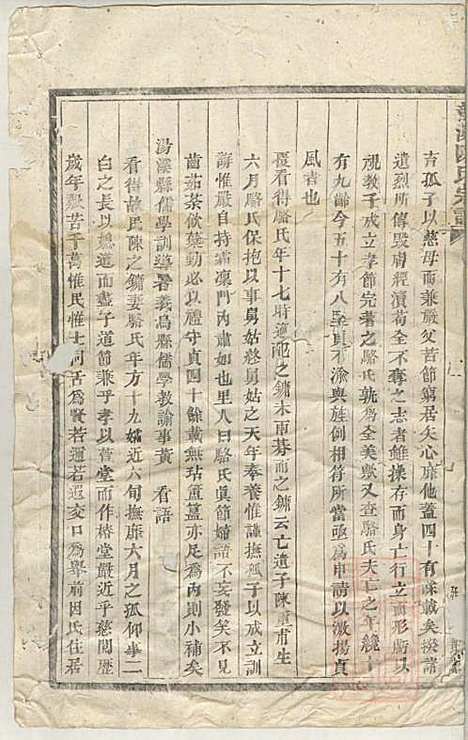 吉孤子以慈母而兼嚴父苦節窮居矢心靡他蓋四十有餘載矣揆諸
遺烈所傳毀膚經瀆苟全不奪之志者雖操存而身亡行立而形所以
視教子成立孝節完著之駱氏孰為全美歟又查駱氏夫亡之年纔十
有九歸今五十有八堅貞不渝與旌例相符所當亟為申請以激揚貞
風者也
覆看得駱氏年十七時適陳之鏞未兩朞而之鏞云亡遺子陳童甫生
六月駱氏保抱以事舅姑終舅姑之天年奉養惟謹撫孤子以成立訓
誨惟嚴自持霜凜門內肅如也里人曰駱氏眞節婦諸不妄發笑不見
齒茹荼飲蘖動必以禮守貞四十餘載無玷董薑亦足為內則小補矣
湯溪縣儒學訓導署義烏縣儒學教諭事黃 看語
看得故民陳之鏞妻駱氏年方十九嫠近六旬撫靡六月之孤仰事二
白之長以聽道而盡子道節兼乎孝以萱堂而作椿堂嚴近乎慈閭歷
歲年艱苦千萬惟民惟士同舌為賢若邇若遐交口為舉前因氏住居
陳氏宗譜